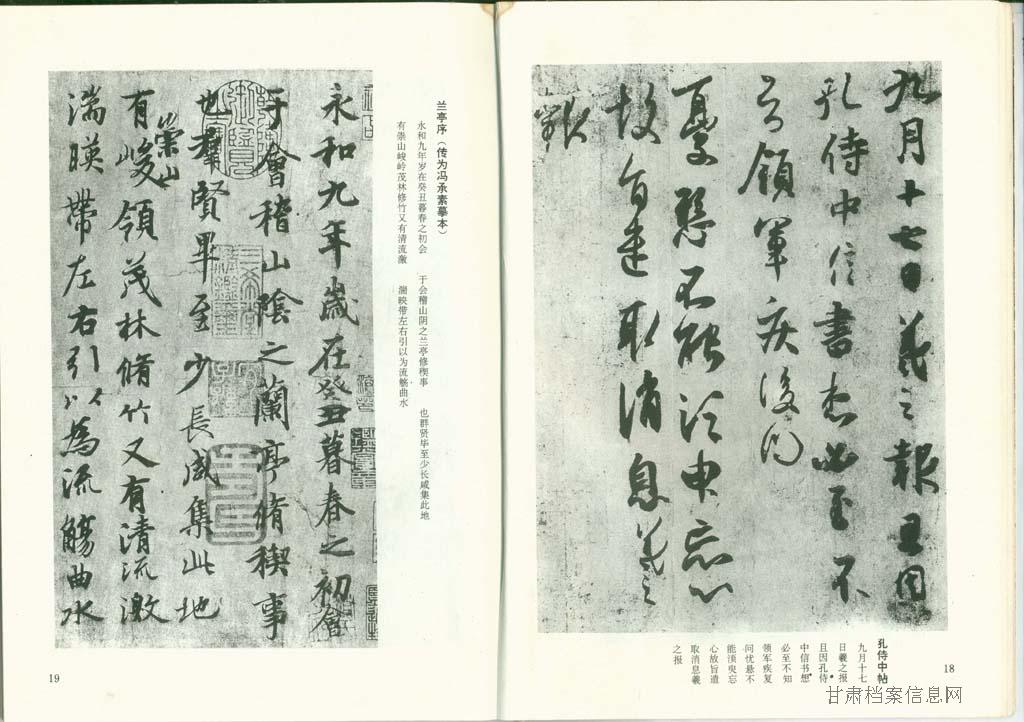 九月十七日羲之報且因
孔侍中信書想必至不
知領軍疾後問
憂懸不能須臾忘心
故旨遣取消息羲之
報
孔侍中帖
九月十七
日羲之报
且因孔侍
中信书想
必至不知
领军疾复
问忧悬不
能须臾忘
心故旨遣
取消息羲
之报
18
兰亭序(传为冯承素摹本)
永和九年岁在癸丑暮春之初会 于会稽山阴之兰亭修禊事 也群贤毕至少长咸集此地
有崇山峻岭茂林修竹又有清流激 湍映带左右引以为流觞曲水
永和九年歲在癸丑暮春之初會
于會稽山陰之蘭亭脩禊事
也羣賢畢至少長咸集此地
有崇山峻領茂林脩竹又有清流激
湍暎帶左右引以為流觴曲水
19
甘肃档案信息网